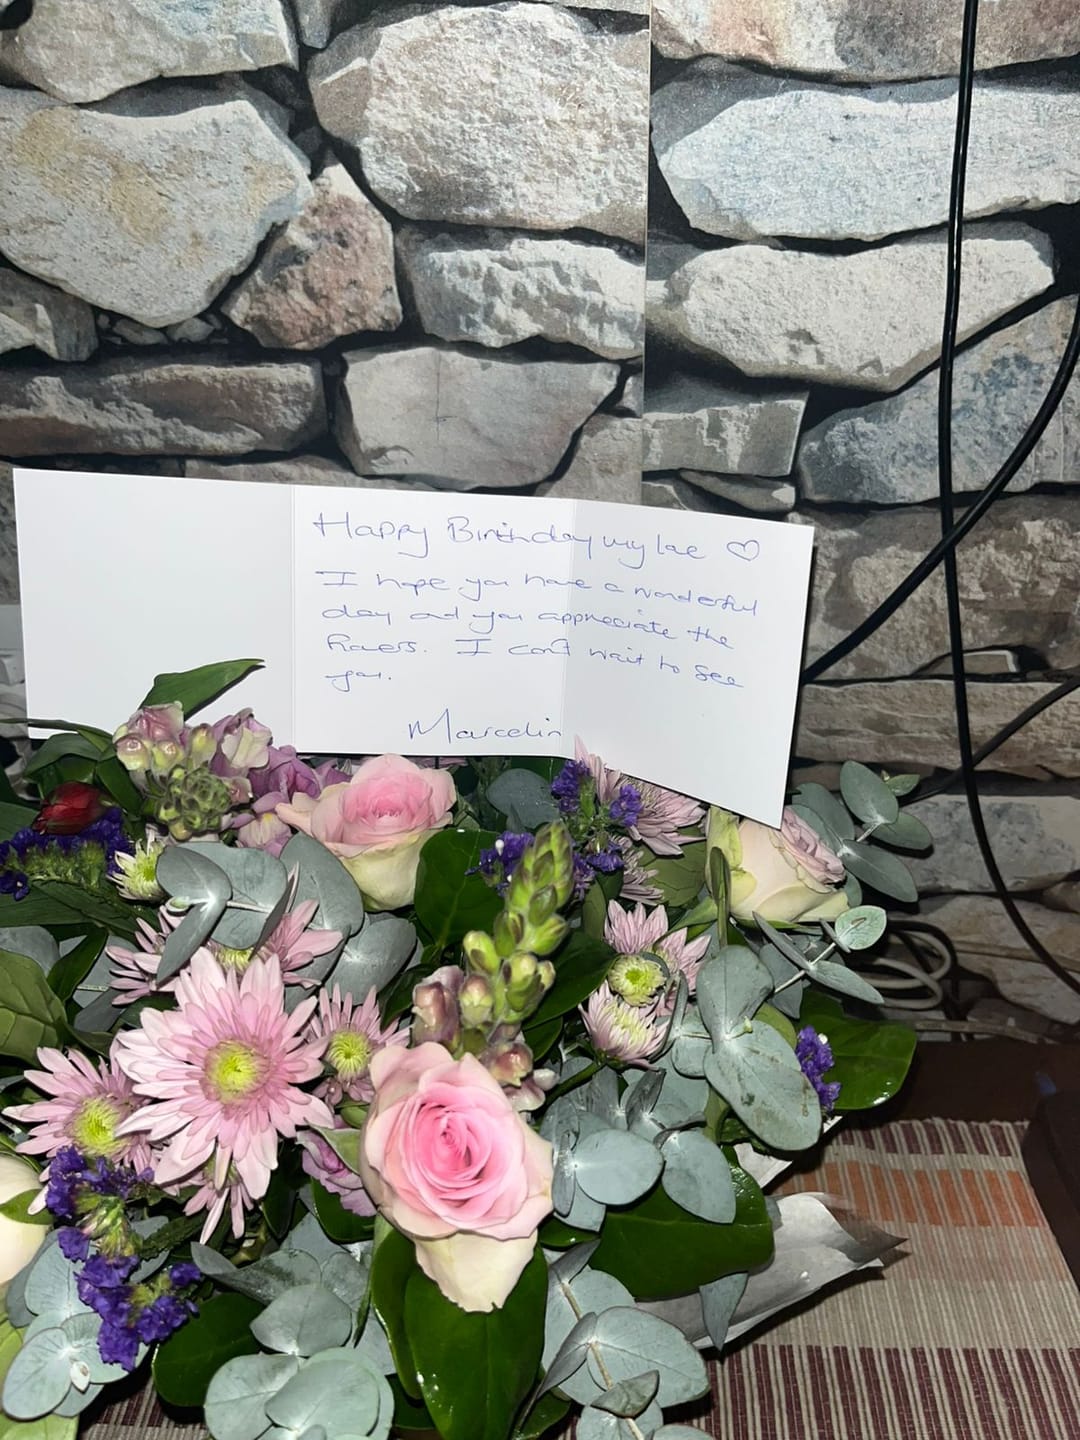 Happy Birthday my love ♡
I hope you have a wonderful
day and you appreciate the
flowers. I can't wait to see
you.
Marcelin